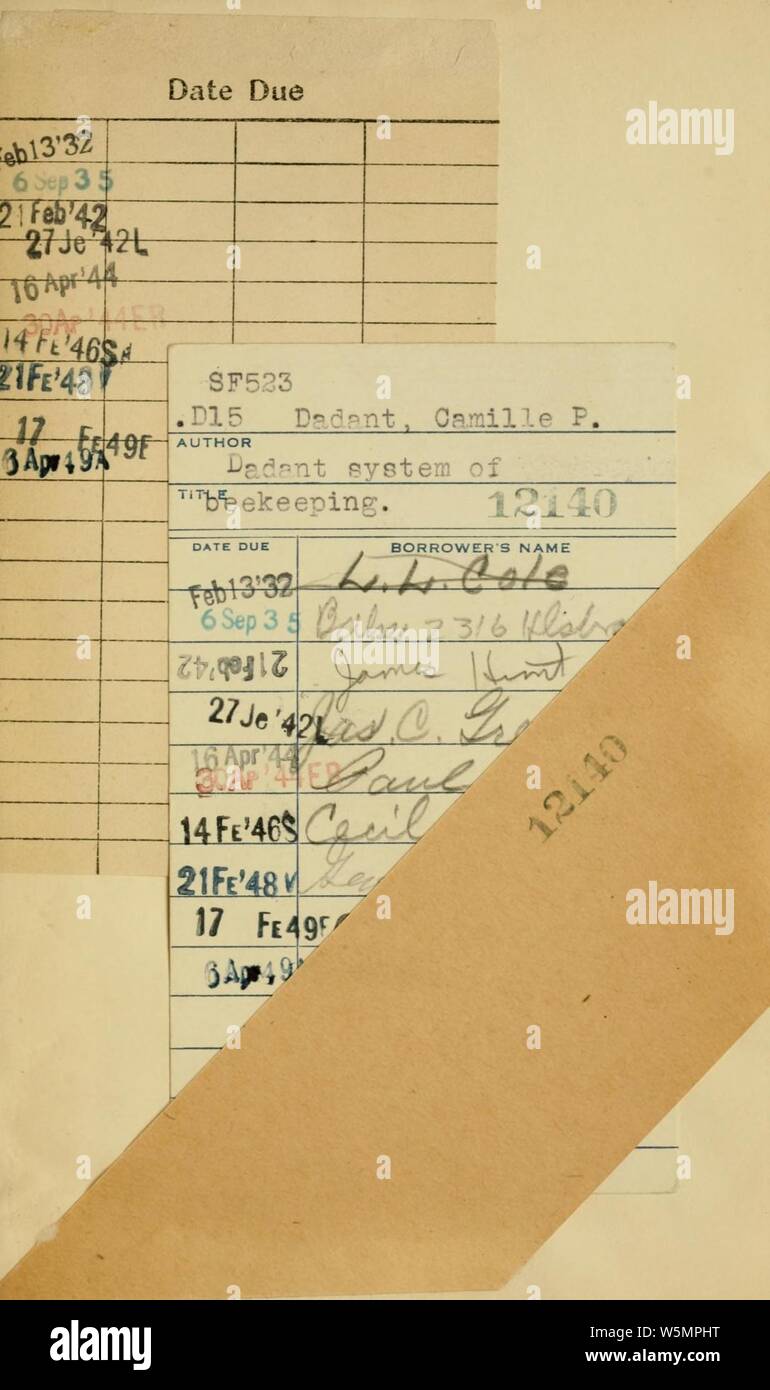 Date Due
Feb13'32
6 Sep 35
21 Feb'42
27 Je '42L
16 Apr'44
30 Ap '44ER
14 FE'46S
21FE'48 V
17 FE49F
6 Apr 49A
SF523
.D15 Dadant, Camille P.
AUTHOR
Dadant system of
TITLE
beekeeping. 12140
DATE DUE BORROWER'S NAME
Feb13'32 L. L. Cole
6 Sep 35 316
21Feb'42 James Hunt
27 Je '42L Jas. C. Gre
16 Apr'44
30 Ap '44ER Paul
14 FE'46S Cecil
21FE'48 V
17 FE49F
6 Apr 49A
12140
alamy
alamy
a
alamy
Image ID: W5MPHT
www.alamy.com